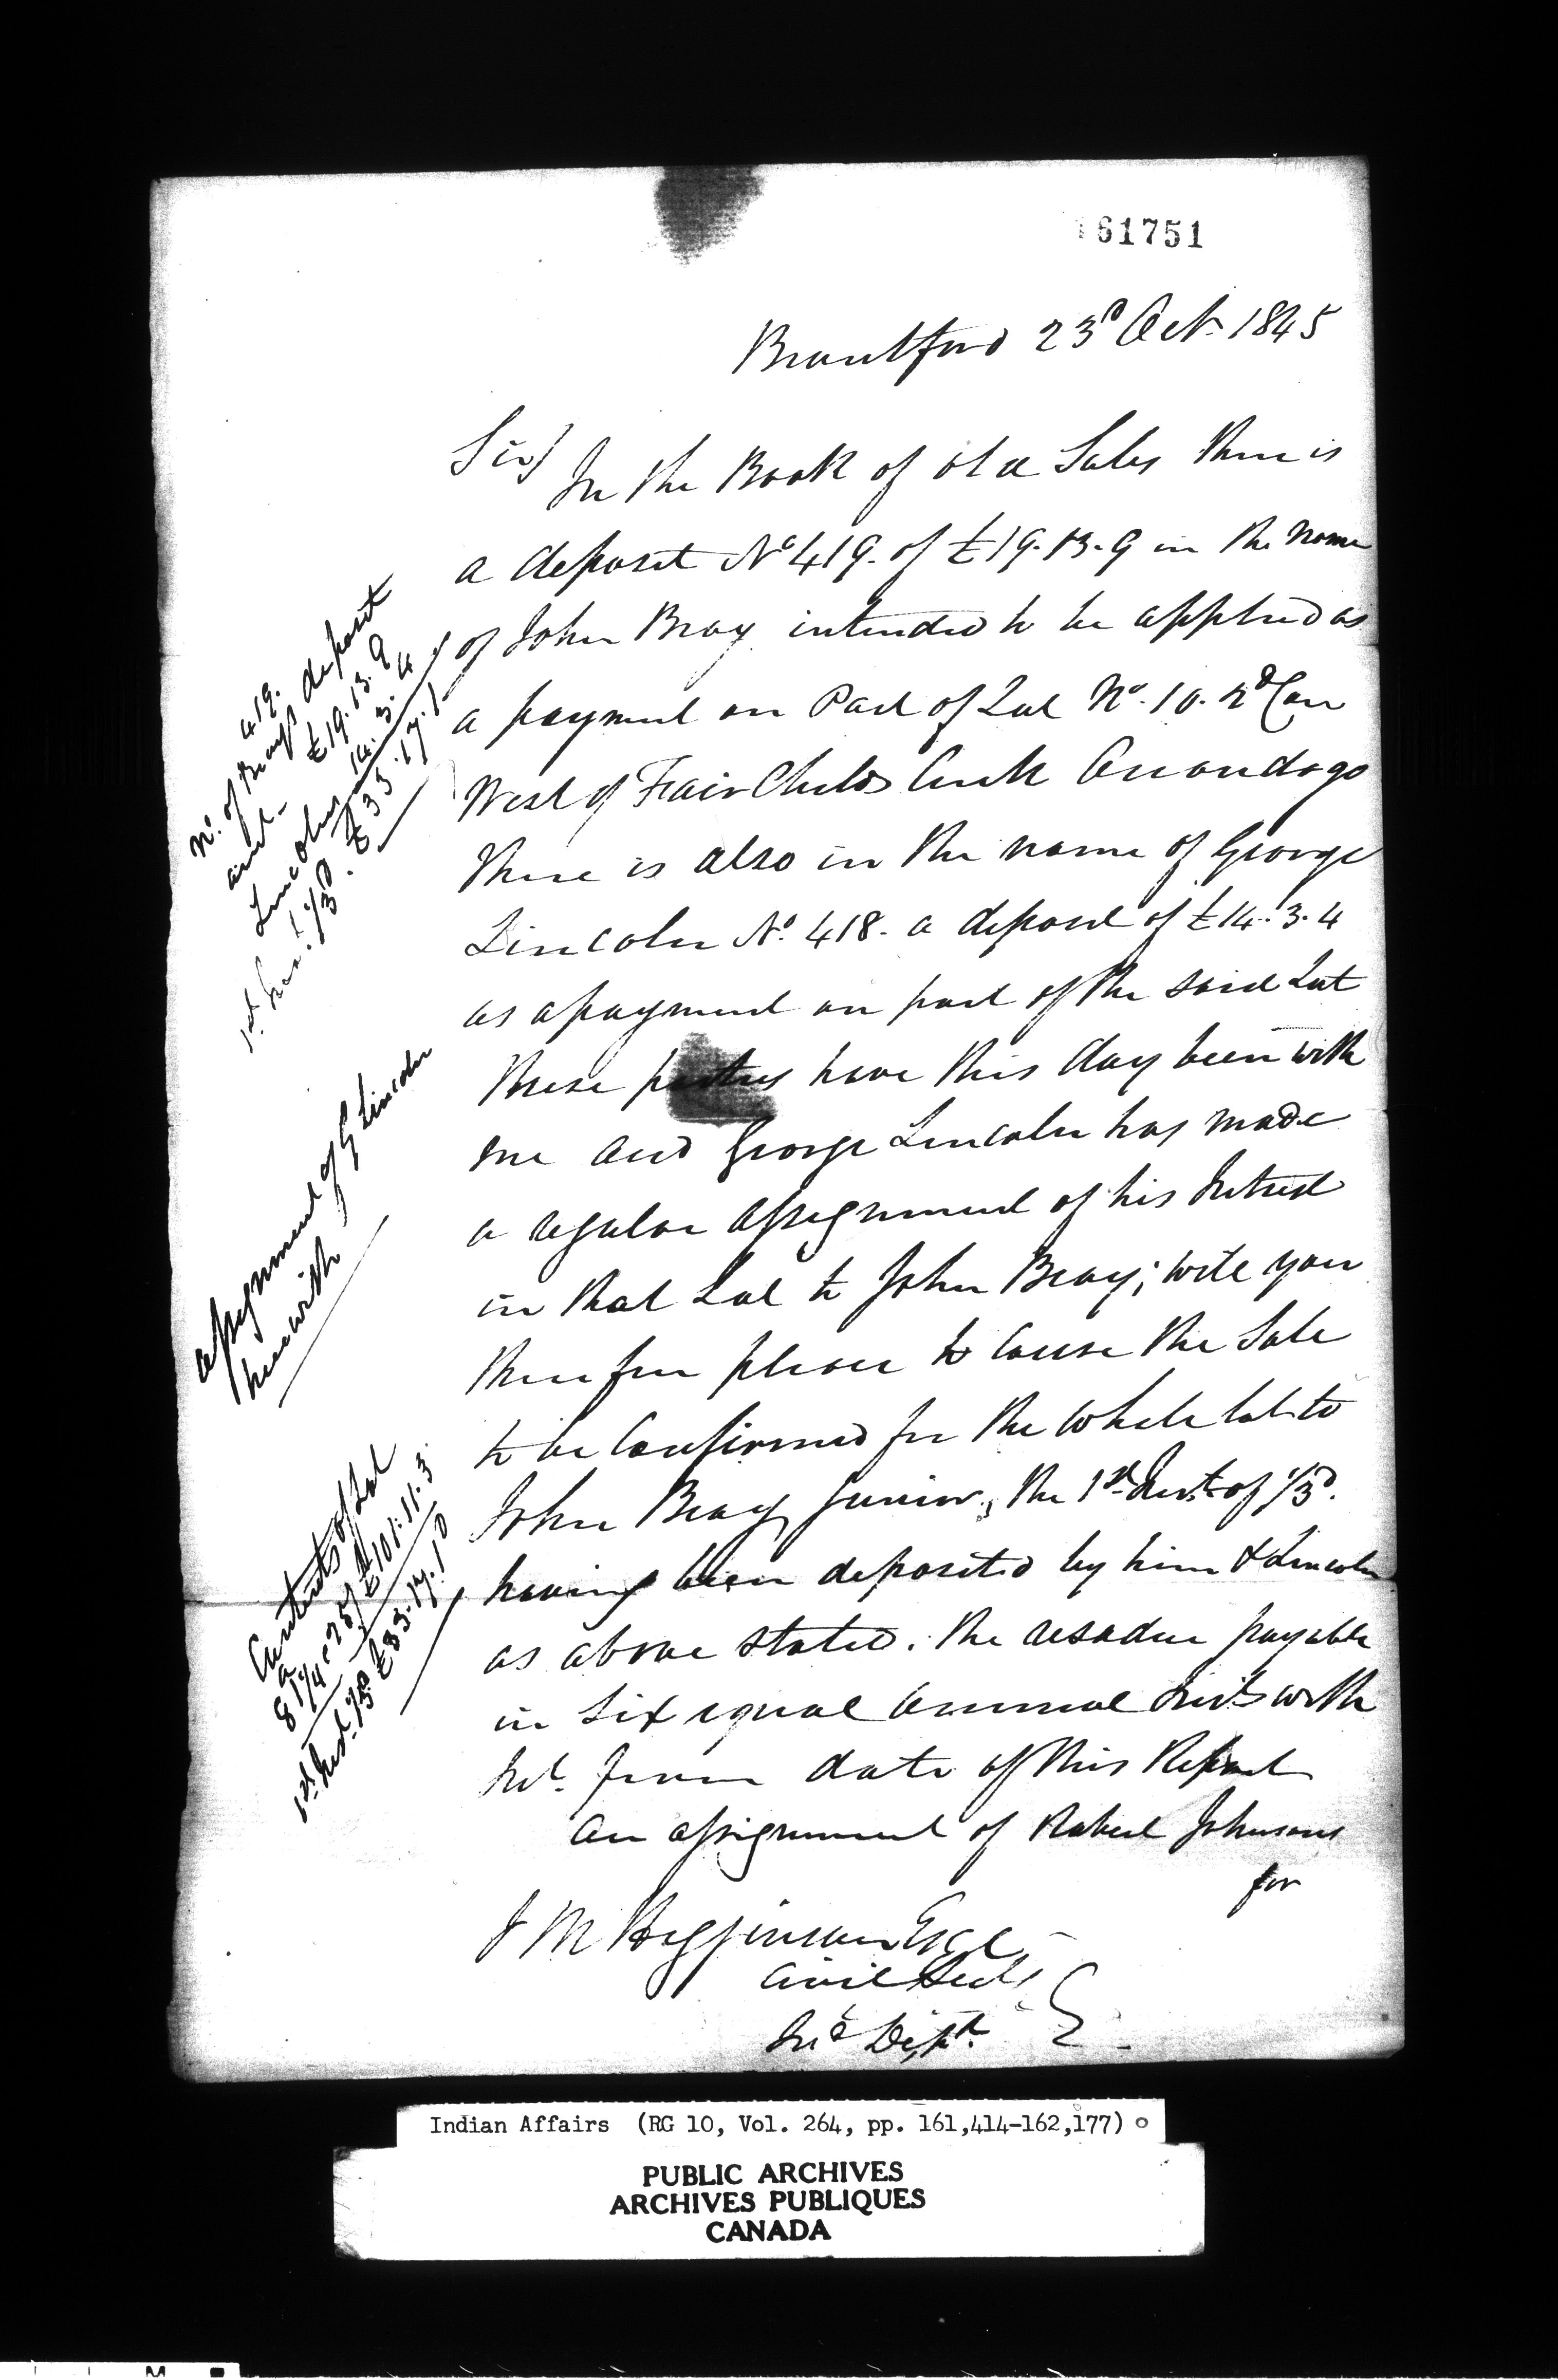 161751
Brantford 23d Oct. 1845
Sir)
In the Book of old Sales there is
a deposit No 419. of £19.13.9 in the name
of John Bray intended to be applied as
a payment on Part of Lot No. 10. 2d Con
West of Fairchilds Creek Onondaga
There is also in the name of George
Lincoln No. 418. a deposit of £14.3.4
as a payment on part of the said Lot
These parties have this day been with
me and George Lincoln has made
a regular assignment of his Interest
in that Lot to John Bray; will you
therefore please to cause the Sale
to be Confirmed for the whole lot to
John Bray Junior, the 1st Inst. of 1/3d.
having been deposited by him & Lincoln
as above stated. The residue payable
in Six equal annual Insts with
Int. from date of this Report
An assignment of Robert Johnsons
for
J M Higginson Esqe
Civil Secty
Ind Dept.
419.
No. of Brays deposit
£19.13.9
and
Lincolns 14.3.4
1st Ins. 1/3d. £33.17.1
assignment of G Lincoln
herewith
Contents of Lot
a
81 1/4 @ 25/ £101.11.3
1st Inst. 1/3d £33.17.1
Indian Affairs (RG 10, Vol. 264, pp. 161,414-162,177)
PUBLIC ARCHIVES
ARCHIVES PUBLIQUES
CANADA